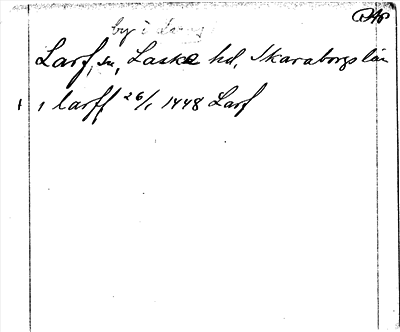 by i
Larf, sn, Laske hd, Skaraborgs län
i larff 26/1 1448 Larf